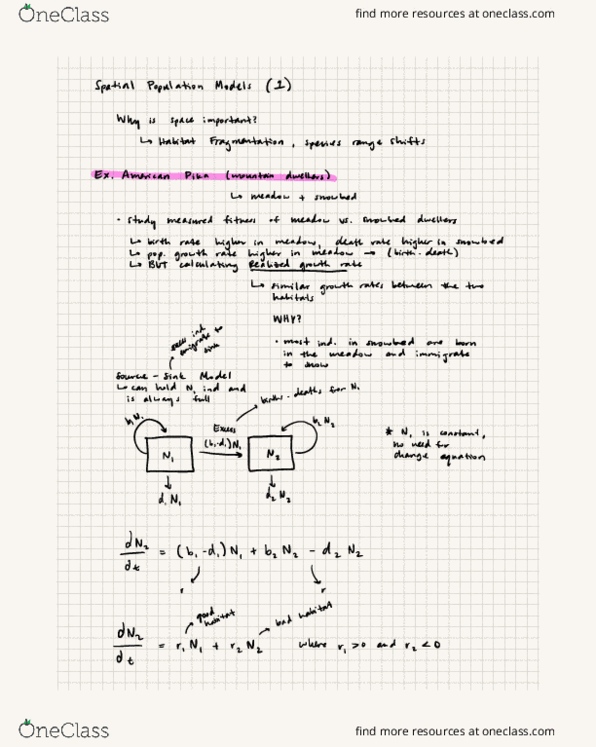 OneClass
find more resources at oneclass.com
Spatial Population Models (1)
Why is space important?
↳ Habitat Fragmentation, species range shifts
Ex. American Pika (mountain dwellers)
↳ meadow + snowbed
• study measured fitness of meadow vs. snowbed dwellers
↳ birth rate higher in meadow, death rate higher in snowbed
↳ pop. growth rate higher in meadow → (birth-death)
↳ BUT calculating Realized growth rate
↳ similar growth rates between the two
habitats
WHY?
• most ind. in snowbed are born
in the meadow and immigrate
to snow
ind
emigrate to
sink
Source-Sink Model
↳ can hold N, ind and
is always full
births - deaths for N₁
b₁N₁
Excess
(b₁-d₁)N₁
b₂N₂
N₁
N₂
d₁N₁
d₂N₂
* N₁ is constant,
no need for
change equation
dN₂/dt = (b₁-d₁)N₁ + b₂N₂ - d₂N₂
good
habitat
bad habitat
dN₂/dt = r₁N₁ + r₂N₂ where r₁>0 and r₂<0
OneClass
find more resources at oneclass.com